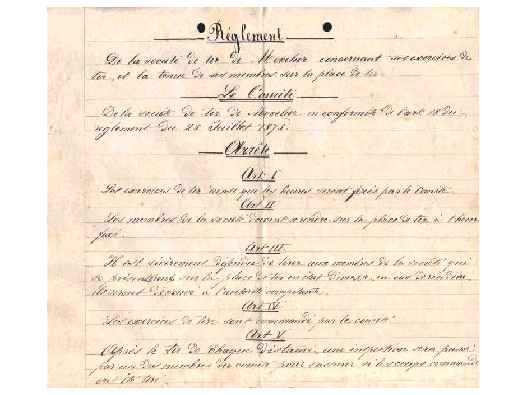 Réglement
De la société de tir de Morelier concernant ses exercices de
tir, et la tenue de ses membres sur la place de tir.
Le Comité
De la société de tir de Morelier en conformité de l'art. 18 du
réglement du 28 Juillet 1878.
Arrête
Art I
Les exercices de tir ainsi que les heures seront fixés par le comité.
Art II
Les membres de la société doivent se rendre sur la place de tir à l'heure
fixé.
Art III
Il est sévèrement défendu de tirer aux membres de la société qui
se présenteront sur la place de tir en état d'ivresse, en cas de récidive
ils seront dénoncé à l'autorité compétente.
Art IV
Les exercices de tir sont commandé par le comité
Art V
Après le tir de chaque distance, une inspection sera passée
par un des membres du comité pour s'assurer si les coups commandé
ont été tiré.